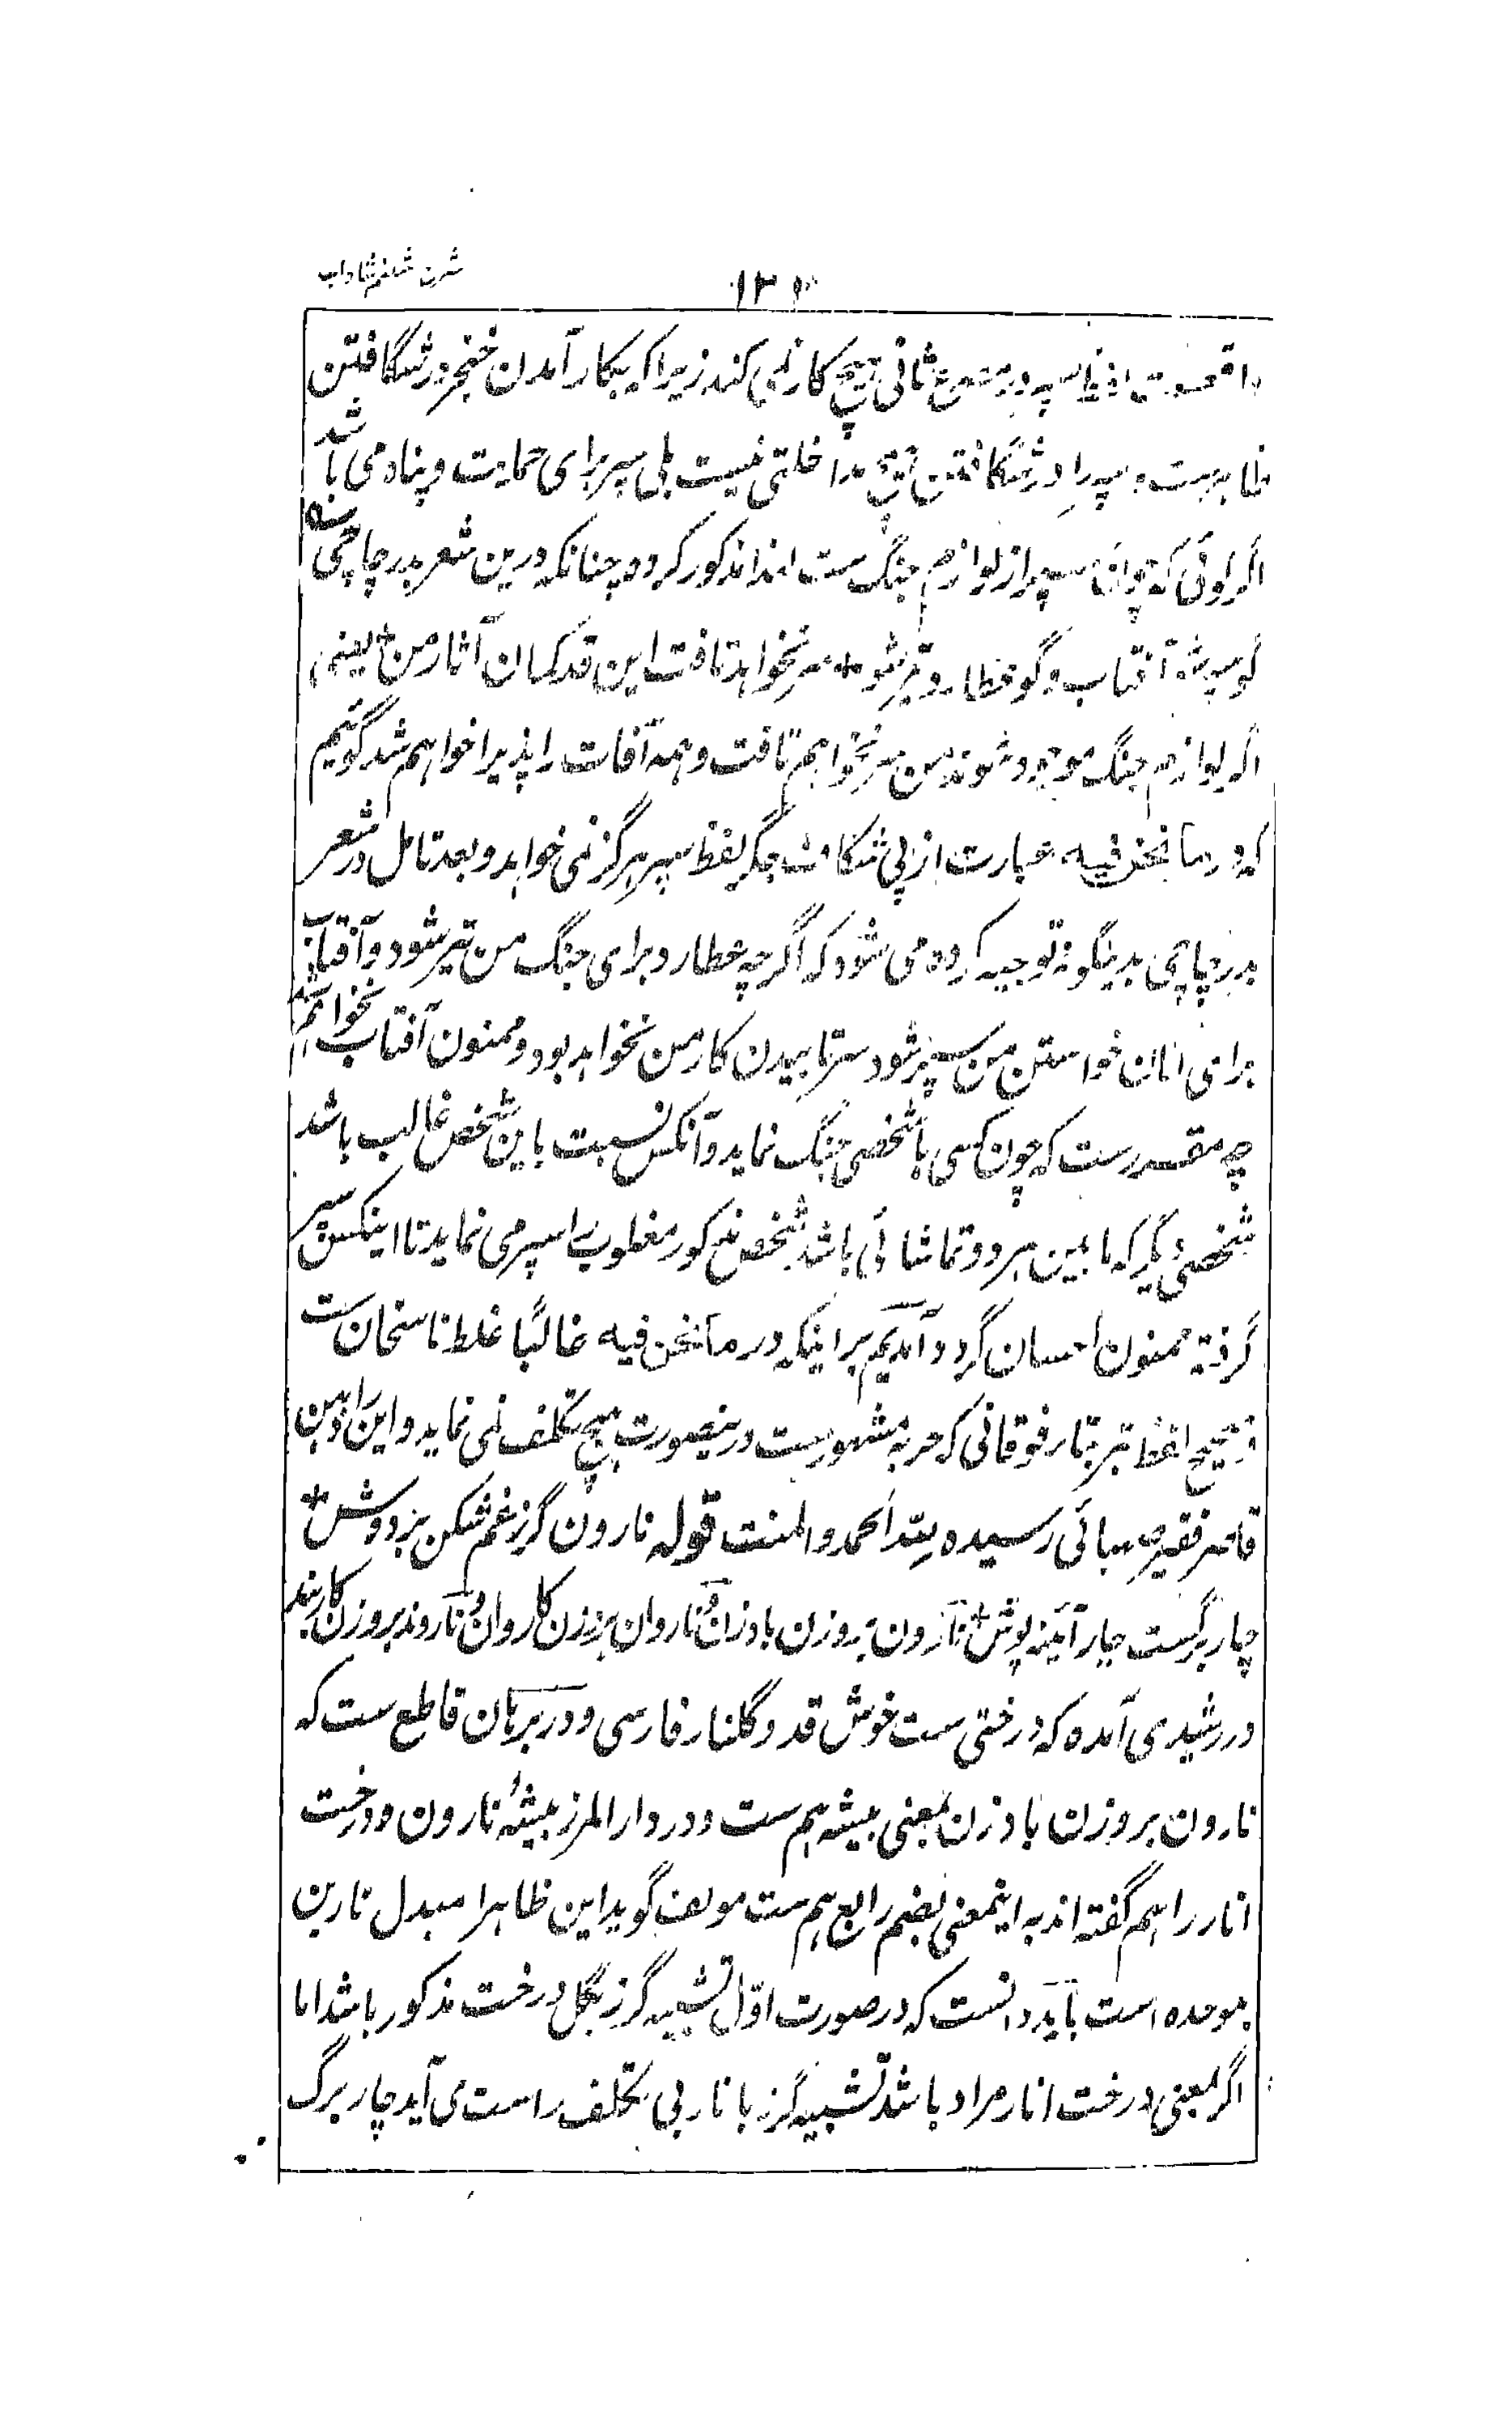 شرح شبنم شاداب
۱۳۰
سپر در مصرع ثانی هیچ کار نمی کند زیرا که بکار آمدن خنجر در شگافتن
و سپر را در شگافتن هیچ مداخلتی نیست بلی سپر برای حمایت و پناه می باشد
اگر گوئی که چون سپر از لوازم جنگ ست لهذا مذکور کرده چنانکه درین شعر بدر چاچی
گو سپر شو آفتاب و گو عطارد تیر شو + سر نخواهد تافت این قد کمان آثار من + یعنی
اگر لوازم جنگ موجود شوند من سر نخواهم تافت و همه آفات را پذیرا خواهم شد گویم
که در ما نحن فیه عبارت از پی شگاف جگر لفظ سپر هرگز نمی خواهد و بعد تامل در شعر
بدر چاچی بدینگونه توجیه کرده می شود که اگرچه عطارد برای جنگ من تیر شود و آفتاب
برای امان خواستن من سپر شود سر تابیدن کار من نخواهد بود و ممنون آفتاب نخواهم شد
چه مقرر ست که چون کسی با شخصی جنگ نماید و آنکس نسبت باین شخص غالب باشد
شخصی دیگر که ما بین هر دو تماشائی باشد شخص مذکور مغلوب را سپر می نماید تا اینکس سپر
گرفته ممنون احسان گردد آمدیم بر اینکه در ما نحن فیه غالبًا غلط ناسخان ست
صحیح لفظ تبر بتاء فوقانی که حربه مشهور ست درینصورت هیچ تکلف نمی نماید و این را ذهن
قاصر فقیر صهبائی رسیده لله الحمد والمنت قوله نارون گرز غم شکن بر دوش +
چار برگست چار آئینه پوش + نارون بروزن بادزن و ناروان بروزن کاروان و ناروند بروزن کاربند
در رشیدی آمده که درختی ست خوش قد و گلنار فارسی و در برهان قاطع ست که
نارون بروزن بادزن بمعنی بیشه هم ست و در دار المرز بیشهٔ نارون و درخت
انار را هم گفته اند به اینمعنی بضم رابع هم ست مولف گوید این ظاهرا مبدل ناربن
بموحده است باید دانست که در صورت اوّل تشبیه گرز بگل درخت مذکور باشد اما
اگر بمعنی درخت انار مراد باشد تشبیه گرز با نار بی تکلف راست می آید چار برگ